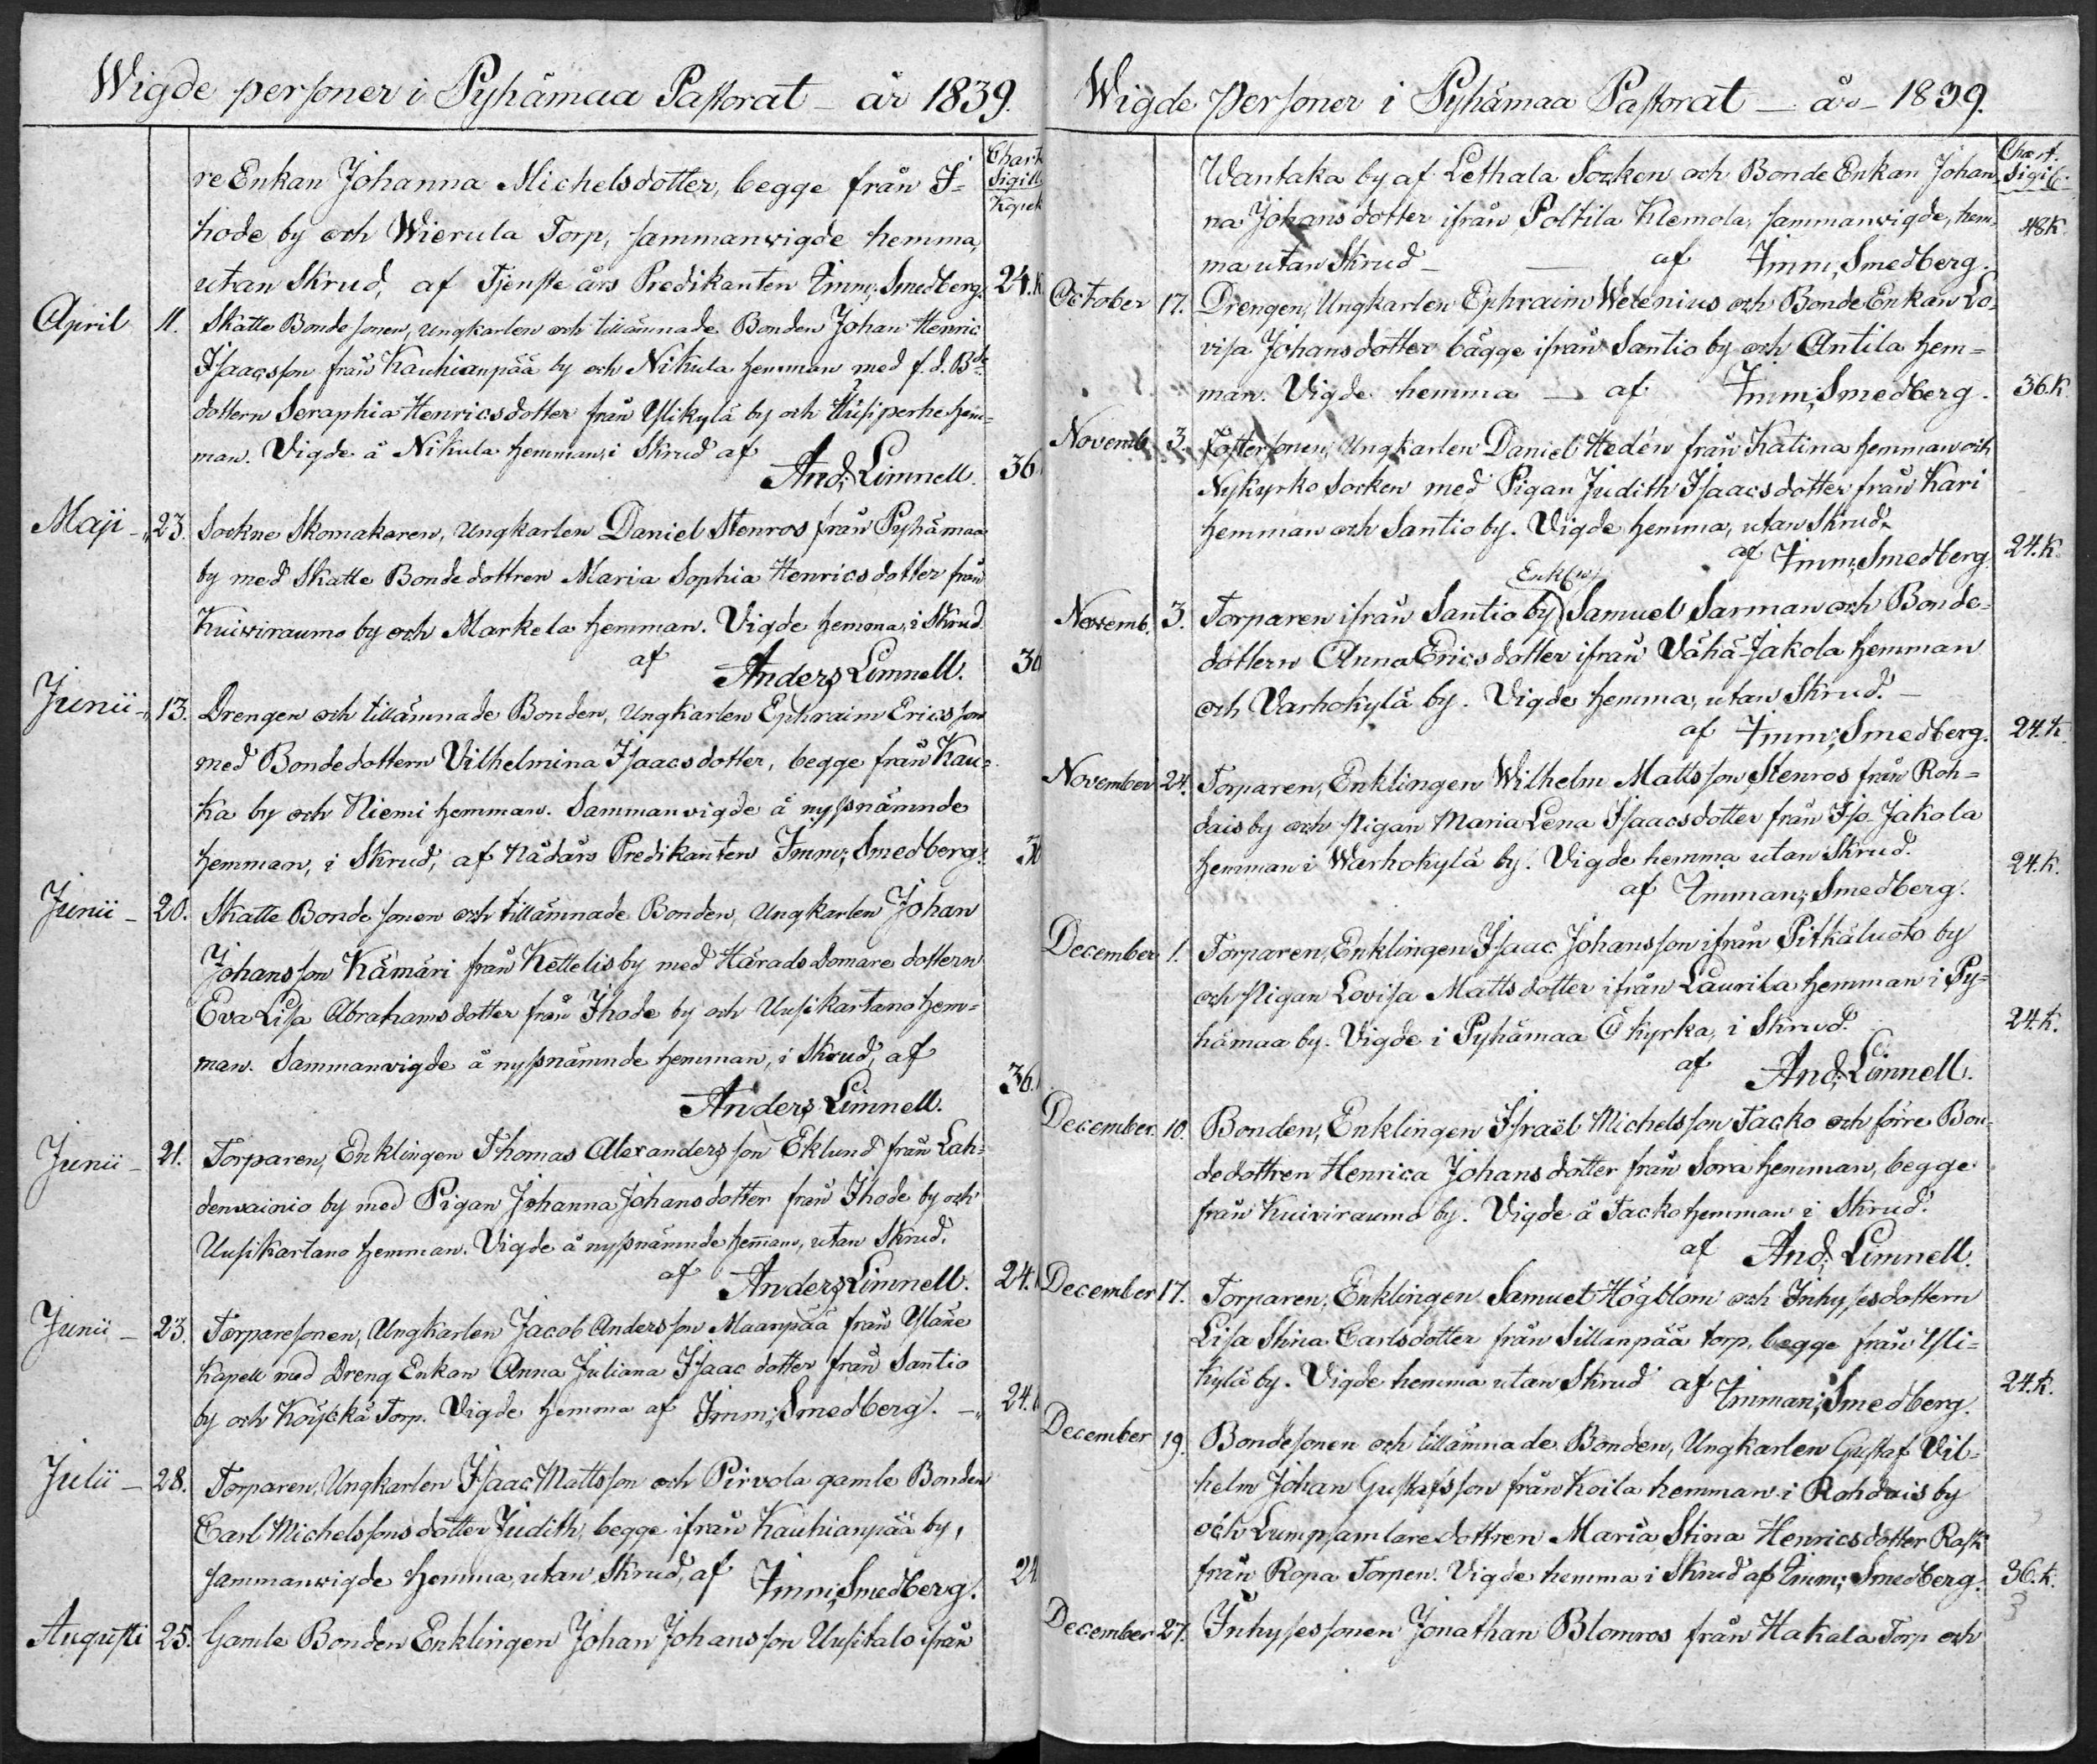 Wigde personer i Pyhämaa Pastorat - år 1839.
Chart.
Sigill.
Kopek
re Enkan Johanna Michelsdotter, begge från I-
hode by och Wierula Torp, sammanvigde hemma,
utan Skrud, af Tjenste års Predikanten Imm; Smedberg. 24. K
April 11. Skatte Bonde sonen, Ungkarlen och tillämnade Bonden Johan Henric
Isaacsson från Kauhianpää by och Nikula hemman med f. d. Bde
dottern Seraphia Henricsdotter från Ylikylä by och hem-
man. Vigde å Nikula hemman, i Skrud af
And; Limnell. 36
Maji - 23. Sockne Skomakaren, Ungkarlen Daniel Stenros från Pyhämaa
by med Skatte Bondedottren Maria Sophia Henricsdotter från
Kuiviraumo by och Markela hemman. Vigde hemma, i Skrud
af Anders Limnell. 30
Junii - 13. Drengen och tillämnade Bonden, Ungkarlen Ephraim Ericsson
med Bondedottern Vilhelmina Isaacsdotter, begge från Kau-
ka by och Niemi hemman. Sammanvigde å nyssnämnde
hemman, i Skrud, af Nådårs Predikanten Imm; Smedberg.
Junii - 20. Skatte Bonde sonen och tillämnade Bonden, Ungkarlen Johan
Johansson Kämäri från Kettelis by med Härads Domare dottern
Eva Lisa Abrahamsdotter från Ihode by och Uusikartano hem-
man. Sammanvigde å nyssnämnde hemman, i Skrud, af
Anders Limnell. 36.
Junii - 21. Torparen, Enklingen Thomas Alexandersson Eklund från Lah-
denvainio by med Pigan Johanna Johansdotter från Ihode by och
Uusikartano hemman. Vigde å nyssnämnde hemman, utan Skrud.
af Anders Limnell. 24.
Junii - 23. Torparesonen, Ungkarlen Jacob Andersson Maanpää från Yläne
Kapell med Dreng Enkan Anna Juliana Isaac dotter från Santio
by och Torp. Vigde hemma af Imm; Smedberg. - 24.
Julii - 28. Torparen, Ungkarlen Isaac Mattsson och Pirvola gamle Bonden
Carl Michelssons dotter Judith, begge ifrån Kauhianpää by,
sammanvigde hemma, utan Skrud, af Imm; Smedberg. 24
Augusti 25. Gamle Bonden Enklingen Johan Johansson Uusitalo ifrån
Wigde Personer i Pyhämaa Pastorat - år - 1839.
Chart.
Sigill.
Wantaka by af Lethala Socken och Bonde Enkan Johan-
na Johansdotter ifrån Poltila Klemola, sammanvigde, hem- 48 K.
ma utan Skrud - af Imm; Smedberg.
October 17. Drengen, Ungkarlen Ephraim Welenius och Bonde Enkan Lo-
visa Johansdotter bägge ifrån Santio by och Antila hem-
man. Vigde hemma - af Imm; Smedberg. 36. K
Novemb. 3. Ungkarlen Daniel Hedén från Katina hemman och
Nykyrko Socken med Pigan Judith Isaacsdotter från Kari
hemman och Santio by. Vigde hemma, utan Skrud.
af Imm; Smedberg. 24. K.
Enkl(n)
Novemb. 3. Torparen ifrån Santio by Samuel Sarman och Bonde-
dottern Anna Ericsdotter ifrån Vähä-Jakola hemman
och Varhokylä by. Vigde hemma, utan Skrud. -
af Imm; Smedberg. 24. K.
November 24. Torparen, Enklingen Wilhelm Mattsson Stenros från Roh-
dais by och Pigan Maria Lena Isaacsdotter från Iso-Jakola
hemman i Warhokylä by. Vigde hemma utan Skrud. 24. K.
af Imman; Smedberg.
December 1. Torparen, Enklingen Isaac Johansson ifrån Pitkäluoto by
och Pigan Lovisa Mattsdotter ifrån Laurila hemman i Py-
hämaa by. Vigde i Pyhämaa Ö kyrka, i Skrud. 24. K.
af And; Limnell.
December. 10. Bonden, Enklingen Israël Michelsson Jacko och förre Bon-
dedottren Henrica Johansdotter från Sora hemman, begge
från Kuiviraumo by. Vigde å Jacko hemman i Skrud.
af And; Limnell.
December 17. Torparen, Enklingen Samuel Högblom och Inhysesdottern
Lisa Stina Carlsdotter från Sillanpää torp, begge från Yli-
kylä by. Vigde hemma utan Skrud af Imman; Smedberg. 24. K.
December 19. Bondesonen och tillämnade Bonden, Ungkarlen Gustaf Vil-
helm Johan Gustafsson från Koila hemman i Rohdais by
och Lumpsamlaredottren Maria Stina Henricsdotter Rask
från Ropa Torpen. Vigde hemma i Skrud af Imm; Smedberg. 36. K.
December 27. Inhysessonen Jonathan Blomros från Hakala Torp och